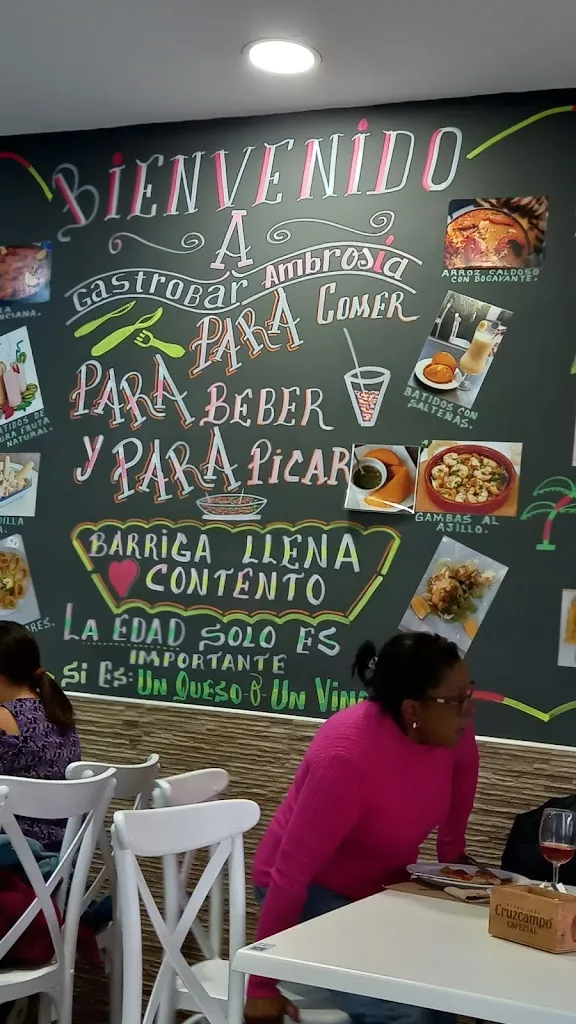 BIENVENIDO
A
GASTROBAR AMBROSIA
PARA COMER
PARA BEBER
Y PARA PICAR
BARRIGA LLENA
CONTENTO
LA EDAD SOLO ES
IMPORTANTE
SI ES: UN QUESO O UN
ARROZ CALDOSO
CON BOGAVANTE.
BATIDOS CON
SALTEÑAS.
GAMBAS AL
AJILLO.
BATIDOS DE
NATURAL.
Cruzcampo
ESPECIAL